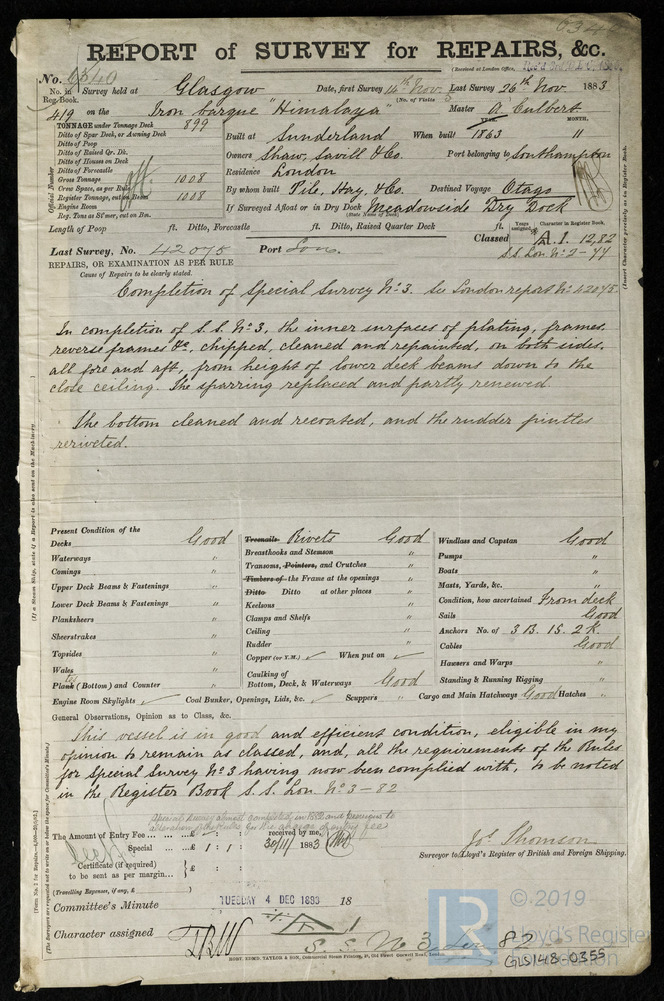 REPORT of SURVEY for REPAIRS, &c.
(Received at London Office,
No. 6840
No. in Reg. Book. Survey held at Glasgow Date, first Survey 16th Nov. Last Survey 26th Nov. 1883
(No. of Visits
419 on the Iron barque "Himalaya" Master A. Culbert
TONNAGE under Tonnage Deck 899
Ditto of Spar Deck, or Awning Deck
Ditto of Poop
Ditto of Raised Qr. Dk.
Ditto of Houses on Deck
Ditto of Forecastle
Gross Tonnage 1008
Crew Space, as per Rule
Register Tonnage, cut on Beam 1008
Engine Room
Reg. Tons as St'mer, cut on Bm.
Official Number
YEAR. MONTH.
Built at Sunderland When built 1863 11
Owners Shaw, Savill & Co. Port belonging to Southampton
Residence London
By whom built Pile, Hay, & Co. Destined Voyage Otago
If Surveyed Afloat or in Dry Dock Meadowside Dry Dock
(State Name of Dock)
Length of Poop ft. Ditto, Forecastle ft. Ditto, Raised Quarter Deck ft.
Years assigned Character in Register Book.
Classed A.1. 12,82
S.S. Lon. No 2-77
(Insert Character precisely as in Register Book.
Last Survey, No. 42075 Port Lon.
REPAIRS, OR EXAMINATION AS PER RULE
Cause of Repairs to be clearly stated.
Completion of Special Survey No. 3. See London report No. 42075.
In completion of S.S. No. 3, the inner surfaces of plating, frames,
reverse frames &c, chipped, cleaned and repainted, on both sides,
all fore and aft, from height of lower deck beams down to the
close ceiling. The sparring replaced and partly renewed.
The bottom cleaned and recoated, and the rudder pintles
reriveted.
(If a Steam Ship, state if a Report is also sent on the Machinery.
Present Condition of the
Decks Good
Waterways "
Comings "
Upper Deck Beams & Fastenings "
Lower Deck Beams & Fastenings "
Planksheers "
Sheerstrakes "
Topsides "
Wales "
Plank (Bottom) and Counter "
Engine Room Skylights ✓ Coal Bunker, Openings, Lids, &c. ✓ Scuppers Cargo and Main Hatchways Good Hatches "
Treenails Rivets Good
Breasthooks and Stemson "
Transoms, Pointers, and Crutches "
Timbers of the Frame at the openings "
Ditto Ditto at other places "
Keelsons "
Clamps and Shelfs "
Ceiling "
Rudder "
Copper (or Y.M.) ✓ When put on ✓
Caulking of
Bottom, Deck, & Waterways Good
Windlass and Capstan Good
Pumps "
Boats "
Masts, Yards, &c. "
Condition, how ascertained From deck
Sails Good
Anchors No. of 3 B. 1 S. 2 K.
Cables Good
Hawsers and Warps "
Standing & Running Rigging "
General Observations, Opinion as to Class, &c.
This vessel is in good and efficient condition, eligible in my
opinion to remain as classed, and, all the requirements of the Rules
for Special Survey No 3 having now been complied with, to be noted
in the Register Book S.S. Lon No 3-82
The Amount of Entry Fee ... £ : : received by me,
Special ... £ 1 : 1 : 30/11/ 1883
Certificate (if required)
to be sent as per margin... £ :
(Travelling Expenses, if any, £ )
Jos. Thomson
Surveyor to Lloyd's Register of British and Foreign Shipping.
Committee's Minute TUESDAY 4 DEC 1883 18
Character assigned
S.S. No 3 Lon 82
GLS148-0355
© 2019
Lloyd's Register
Foundation
LR